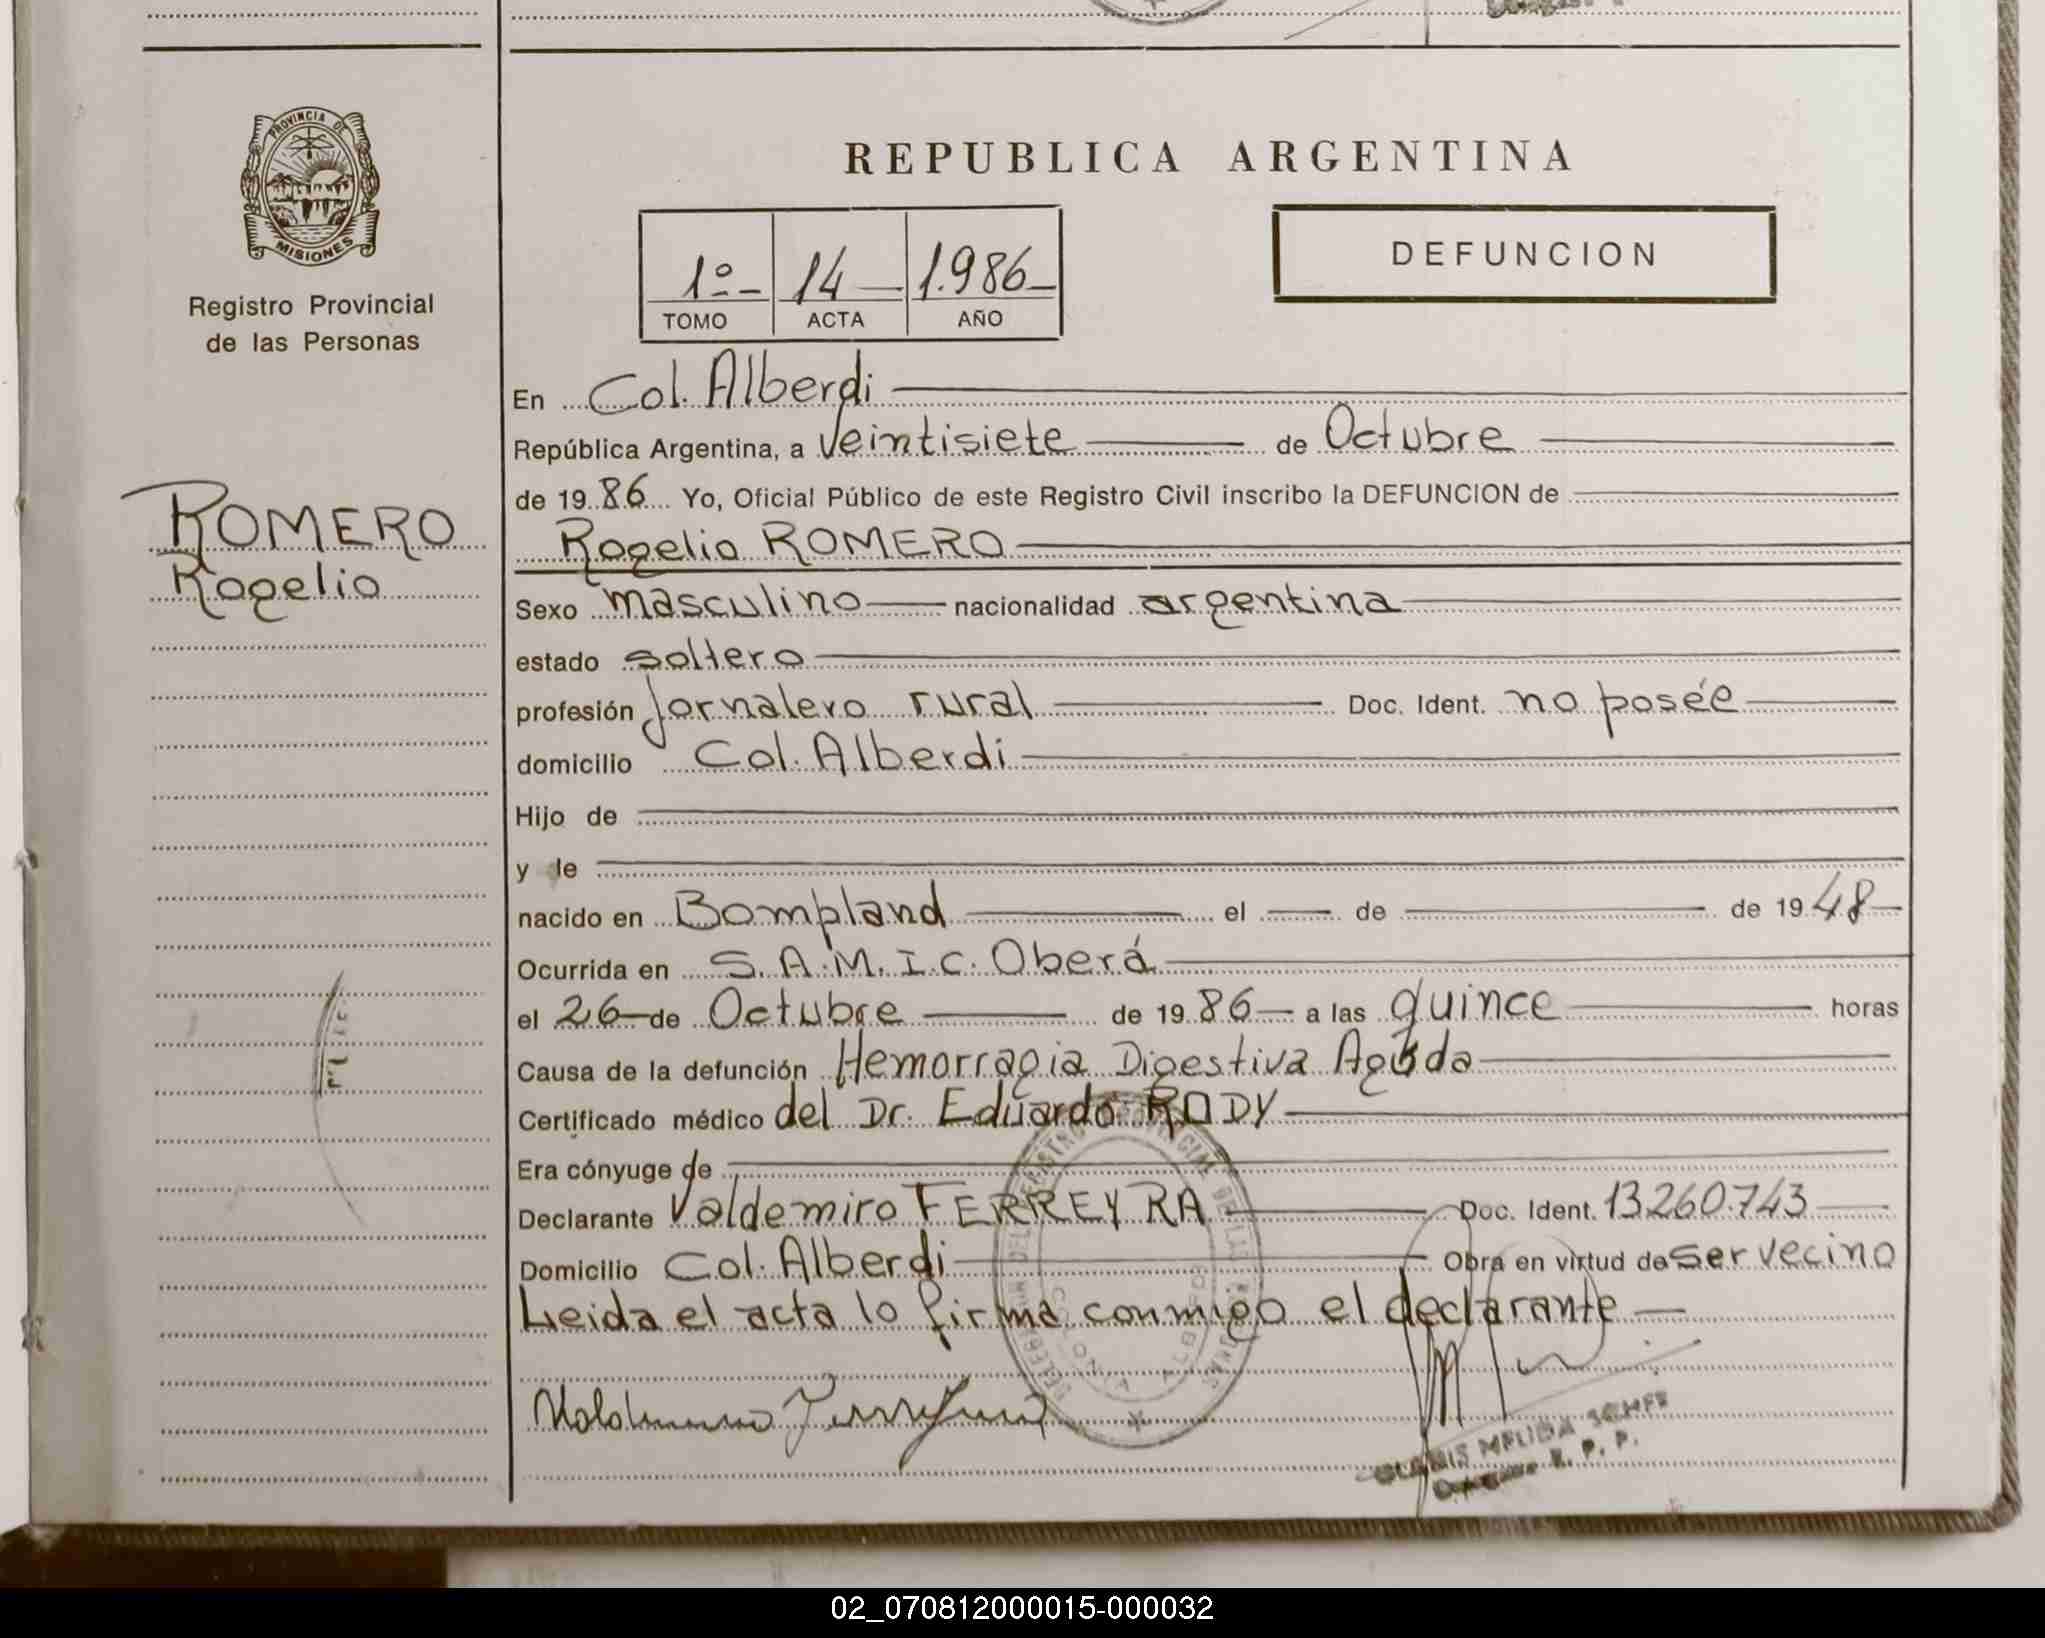 PROVINCIA DE
MISIONES
Registro Provincial
de las Personas
ROMERO
Rogelio
REPUBLICA ARGENTINA
1º- 14 1.986-
TOMO ACTA AÑO
DEFUNCION
En Col. Alberdi
República Argentina, a veintisiete de Octubre
de 19 86 Yo, Oficial Público de este Registro Civil inscribo la DEFUNCION de
Rogelio ROMERO
Sexo masculino nacionalidad argentina
estado soltero
profesión Jornalero rural Doc. Ident. no posée
domicilio Col. Alberdi
Hijo de
y le
nacido en Bompland el de de 19 48
Ocurrida en S.A.M.I.C. Oberá
el 26 de Octubre de 19 86 a las quince horas
Causa de la defunción Hemorragia Digestiva Aguda
Certificado médico del Dr. Eduardo RODY
Era cónyuge de
Declarante Valdemiro FERREYRA Doc. Ident. 13.260.743
Domicilio Col. Alberdi Obra en virtud de ser vecino
Leida el acta lo firma conmigo el declarante
COLONIA ALBERDI
MELIDA
R. P. P.
02_070812000015-000032